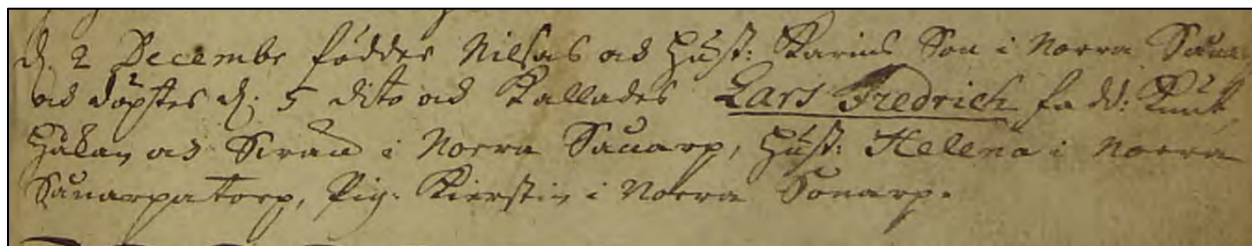 d. 2 Decembr föddes Nilsas och Hust: Karins Son i Norra
och döptes d: 5 dito och Kallades Lars Fredrich fadd: Knut,
Håkan och i Norra Sånarp, Hust: Helena i Norra
Sånarpatorp, Pig: Kierstin i Norra Sonarp.